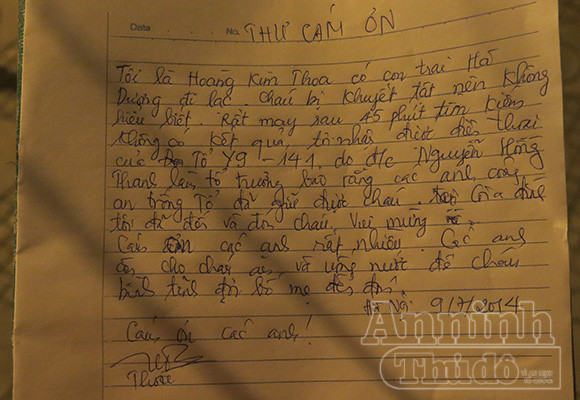 Date No. THƯ CẢM ƠN
Tôi là Hoàng Kim Thoa có con trai Hải
Dương đi lạc cháu bị khuyết tật nên không
hiểu biết. Rất may sau 45 phút tìm kiếm
không có kết quả, tôi nhận được điện thoại
của Tổ Y9 - 141. do đ/c Nguyễn Hồng
Thanh làm tổ trưởng báo rằng các anh công
an trong Tổ đã giữ được cháu. Gia đình
tôi đã đến và đón cháu. Vui mừng
Cảm ơn các anh rất nhiều. Các anh
còn cho cháu ăn, và uống nước để cháu
bình tĩnh đợi bố mẹ đến đón.
Hà Nội 9/7/2014
Cảm ơn các anh!
Thoa
An ninh
Thủ đô